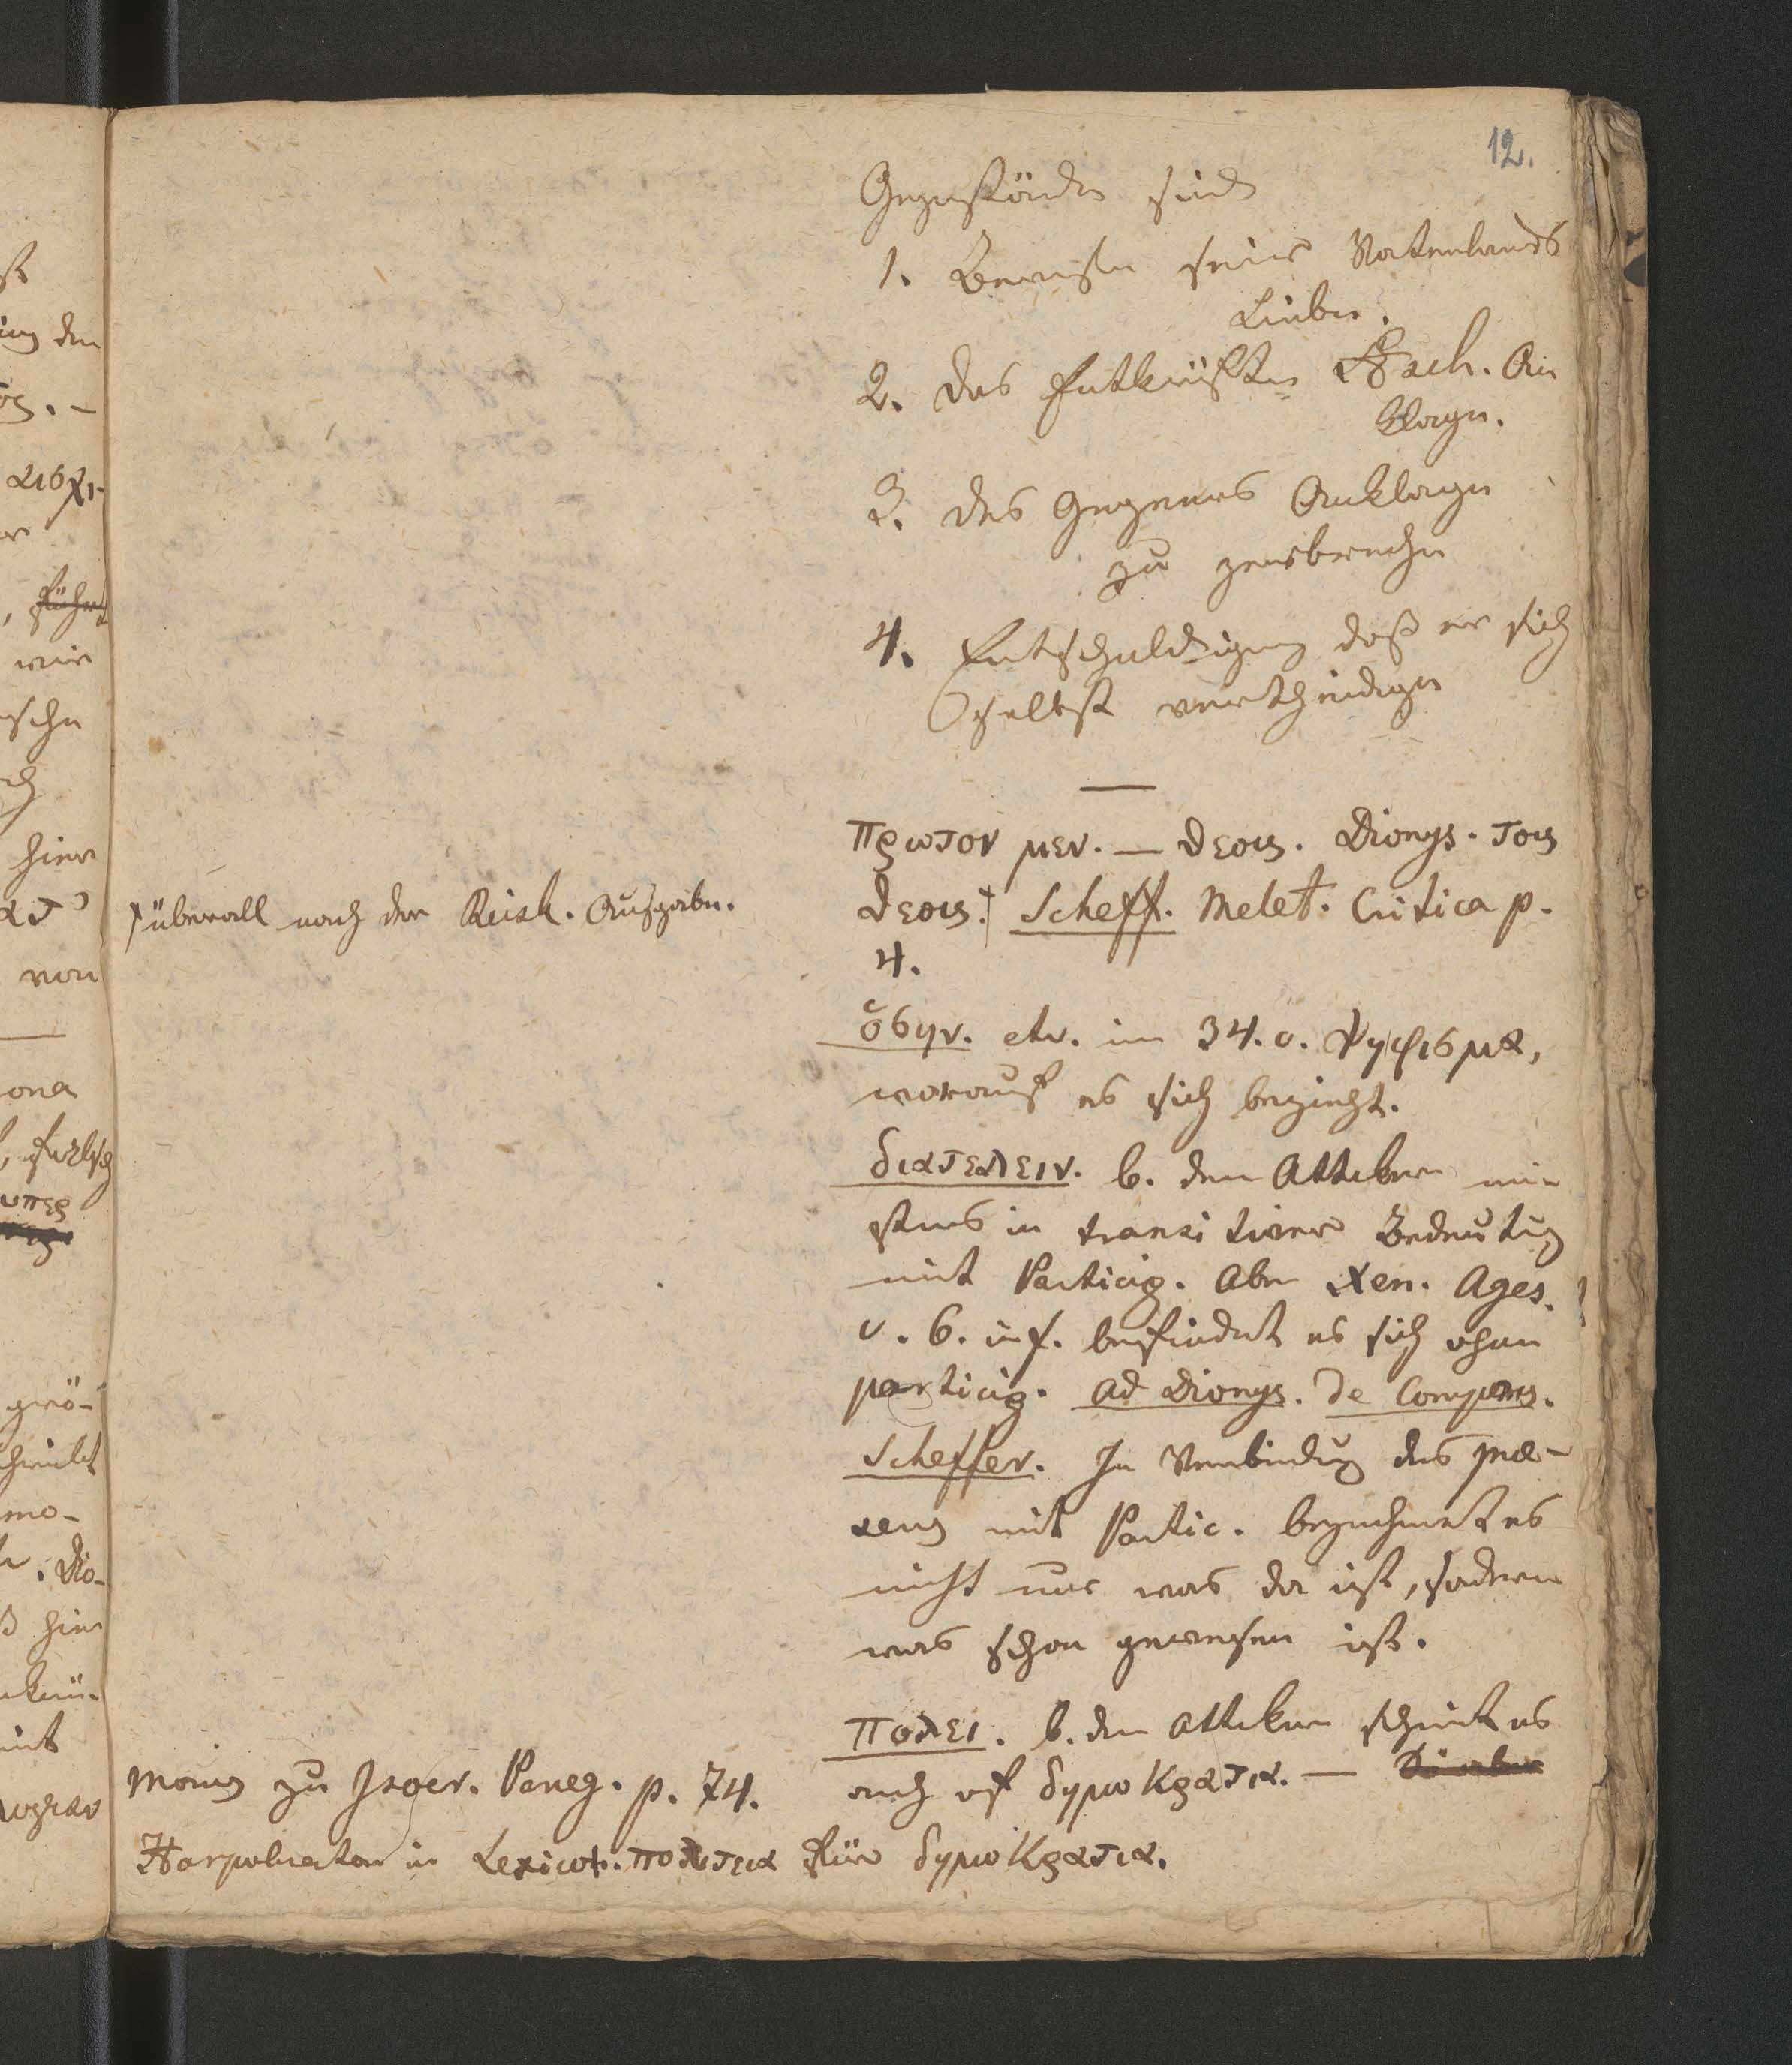 12.
Gegenstände sind
1. Beweise seiner Vaterlands
Liebe.
2. Das Entkräften Aesch. An
klage.
3. des Gegners Anklage
zu zerbrechen
4. Entschuldigung daß er sich
selbst vertheidige
πρωτον μεν. — θεοις. Dionys. τοις
θεοις.† Scheff. Melet. Critica p.
4.
† überall nach der Reisk. Ausgabe.
ὁσην. etc. im 34. c. ψηφισμα,
worauf es sich bezieht.
διατελειν. b. den Attikern mei
stens in transitiver Bedeutung
mit Particip. Aber Xen. Ages.
c. 6. inf. befindet es sich ohne
particip. ad Dionys. de Compos.
Scheffer. In Verbindung des
mit Partic. bezeichnet es
nicht nur was da ist, sondern
was schon gewesen ist.
πολει. b. den Attikern scheint es
auch oft δημωκρατια. —
Morus zu Isocr. Paneg. p. 74.
Harpokration in Lexico. πολιτεια für δημωκρατια.